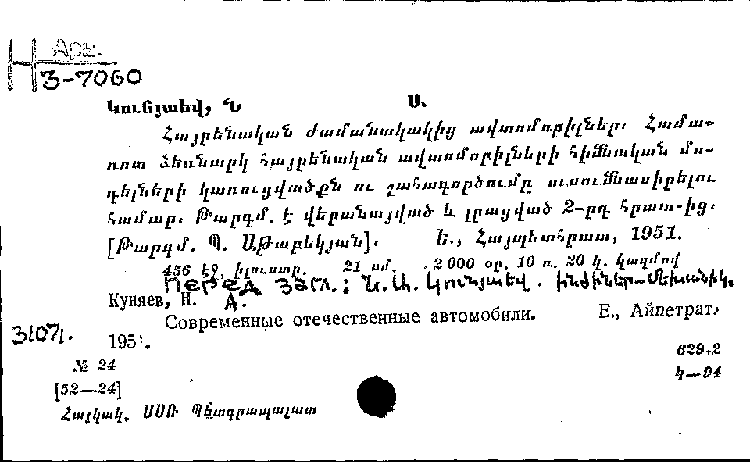 Арм.
3-7060
Կունյաև, Ն Ա.
Հայրենական ժամանակակից ավտոմոբիլներ։ Համա-
ռոտ ձեռնարկ հայրենական ավտոմոբիլների հիմնական մո-
դելների կառուցվածքն ու շահագործումը ուսումնասիրելու
համար։ Թարգմ. է վերանայված և լրացված 2-րդ հրատ-ից։
[Թարգմ. Պ. Աթաբեկյան]. Ե., Հայպետհրատ, 1951.
456 էջ, իլյուստր. 21 սմ. 2000 օր. 10 ռ. 20 կ. կազմով
Перед загл.: Ն. Ա. Կունյաև. ինժիներ-մեխանիկ.
Куняев, Н. А.
Современные отечественные автомобили. Е., Айпетрат,
3107. 195 .
№ 24
629.2
[52—24]
Կ—94
Հայկակ. ՍՍՌ Պետգրապալատ